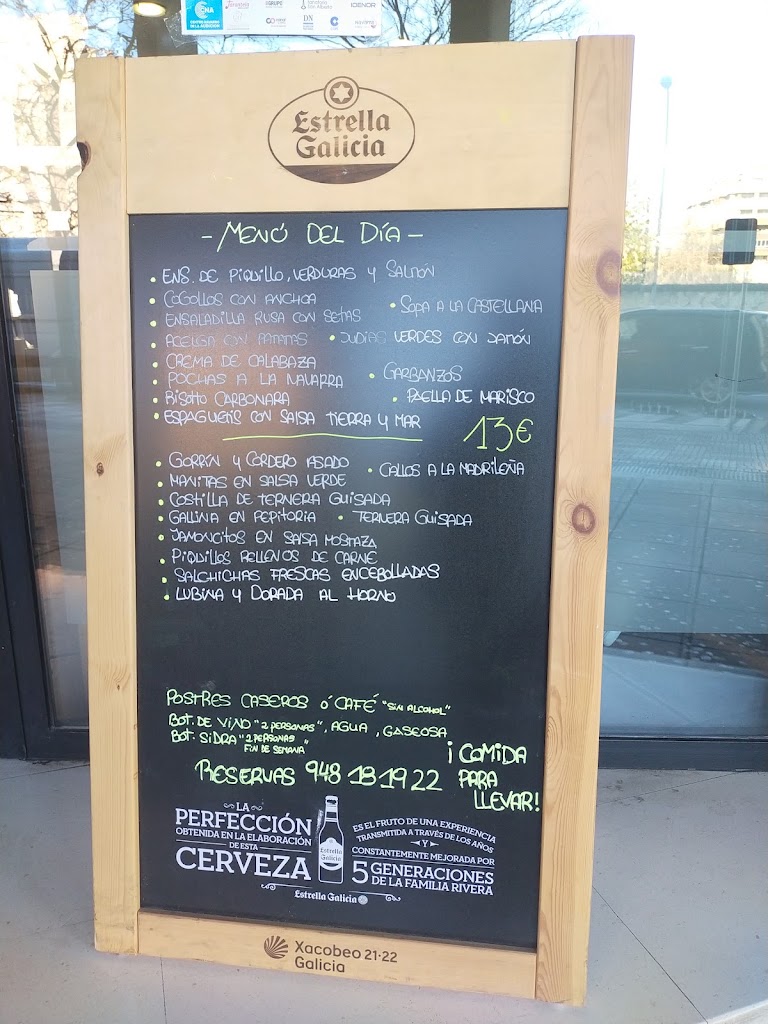 CNA
GRUPO
IDENOR
DN
Estrella
Galicia
- MENÚ DEL DÍA -
• ENS. DE PIQUILLO, VERDURAS Y SALMÓN
• COGOLLOS CON ANCHOA
• SOPA A LA CASTELLANA
• ENSALADILLA RUSA CON SETAS
• ACELGA CON PATATAS • JUDÍAS VERDES CON JAMÓN
• CREMA DE CALABAZA
• GARBANZOS
• POCHAS A LA NAVARRA
• RISOTTO CARBONARA • PAELLA DE MARISCO
• ESPAGUETIS CON SALSA TIERRA Y MAR
13€
• GORRÍN Y CORDERO ASADO • CALLOS A LA MADRILEÑA
• MANITAS EN SALSA VERDE
• COSTILLA DE TERNERA GUISADA
• GALLINA EN PEPITORIA • TERNERA GUISADA
• JAMONCITOS EN SALSA MOSTAZA
• PIQUILLOS RELLENOS DE CARNE
• SALCHICHAS FRESCAS ENCEBOLLADAS
• LUBINA Y DORADA AL HORNO
POSTRES CASEROS Ó CAFÉ "SIN ALCOHOL"
BOT. DE VINO "2 PERSONAS", AGUA, GASEOSA
BOT. SIDRA "2 PERSONAS
FIN DE SEMANA"
RESERVAS 948 18 19 22
¡COMIDA
PARA
LLEVAR!
LA
PERFECCIÓN
OBTENIDA EN LA ELABORACIÓN
DE ESTA
CERVEZA
Estrella
Galicia
ES EL FRUTO DE UNA EXPERIENCIA
TRANSMITIDA A TRAVÉS DE LOS AÑOS
Y
CONSTANTEMENTE MEJORADA POR
5 GENERACIONES
DE LA FAMILIA RIVERA
Estrella Galicia
Xacobeo 21·22
Galicia